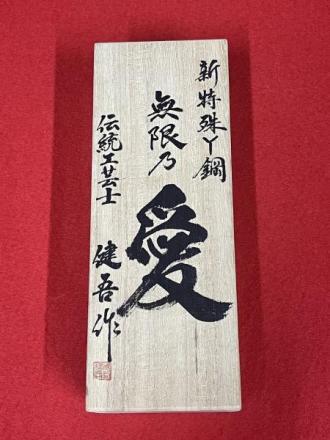 新特殊丫鋼
無限乃
愛
伝統工芸士
健吾作